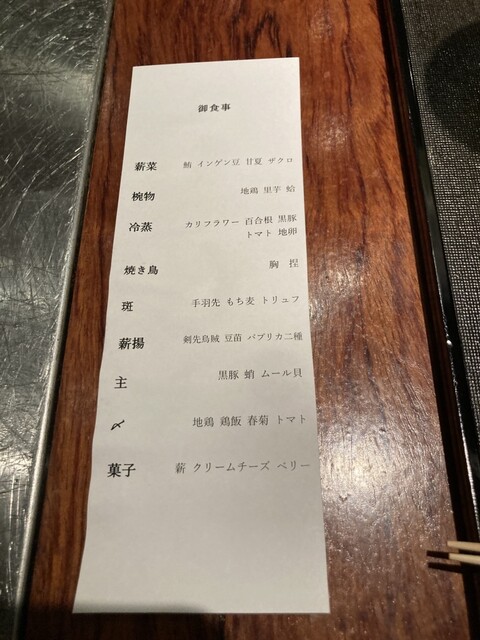 御食事
薪菜 鮪 インゲン豆 甘夏 ザクロ
椀物 地鶏 里芋 蛤
冷蒸 カリフラワー 百合根 黒豚
トマト 地卵
焼き鳥 胸 捏
斑 手羽先 もち麦 トリュフ
薪揚 剣先烏賊 豆苗 パプリカ二種
主 黒豚 蛸 ムール貝
〆 地鶏 鶏飯 春菊 トマト
菓子 薪 クリームチーズ ベリー